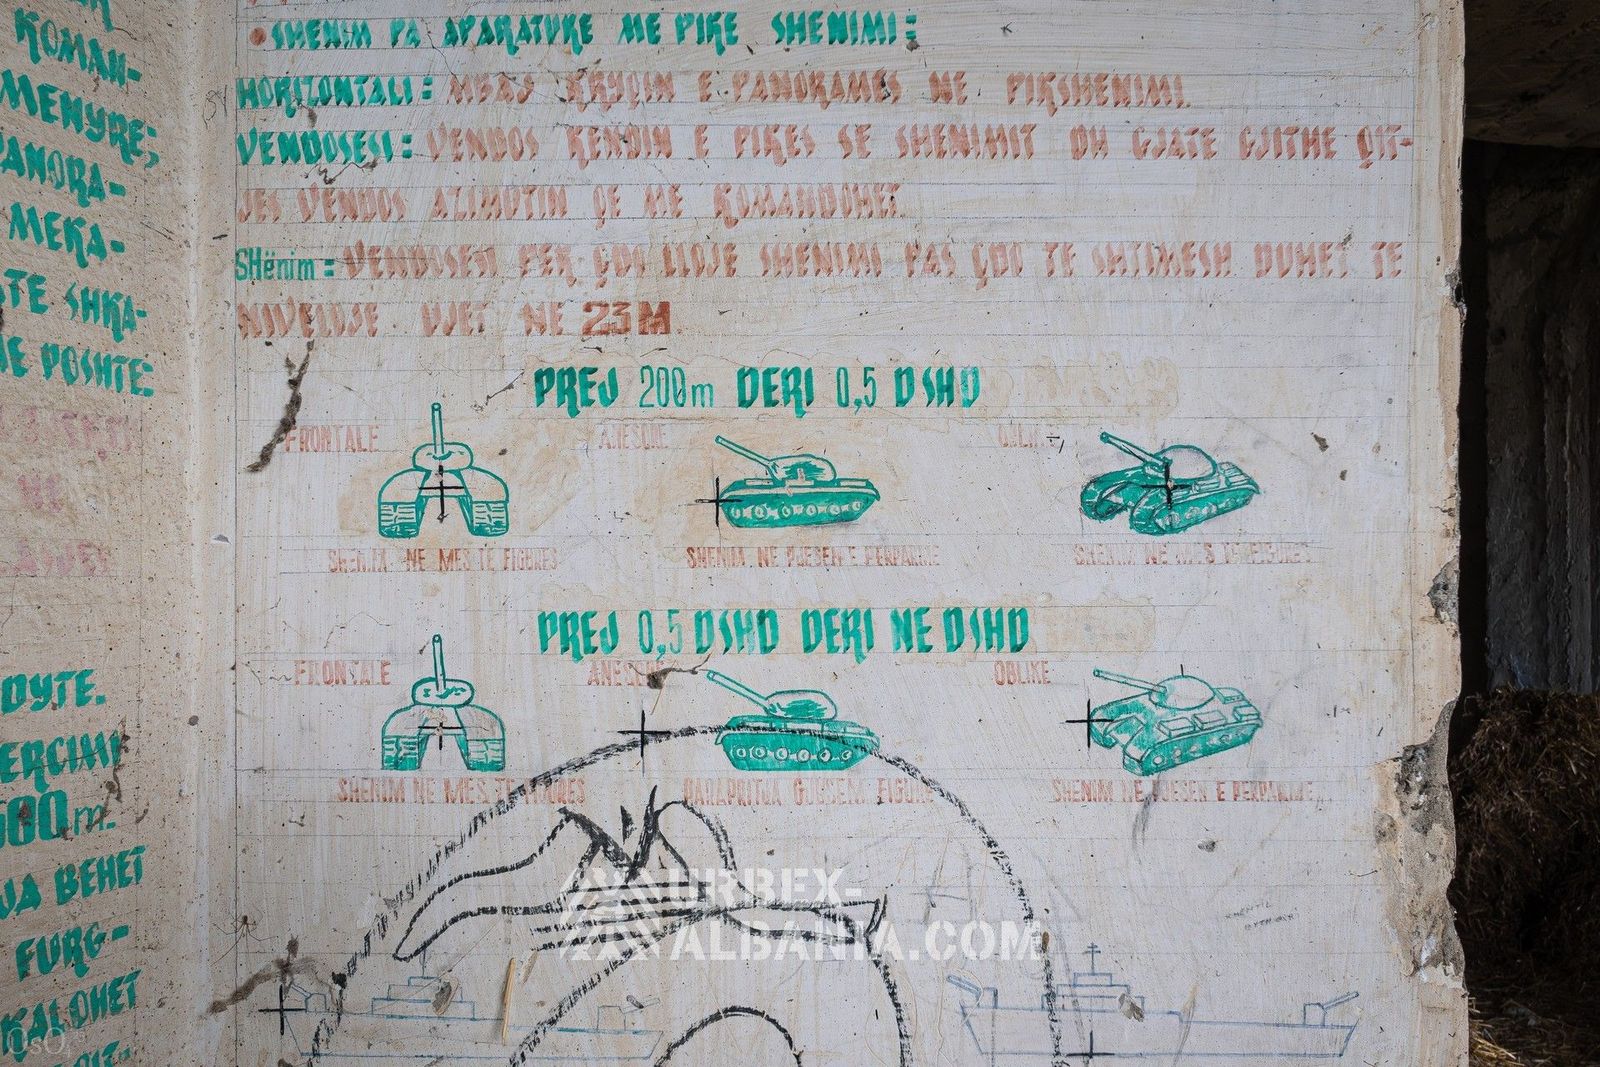 KOMAN-
MENYRE;
PANORA-
MEKA-
STE SHKA-
NE POSHTE:
NE
DYTE.
ERCIMI
500m.
JA BEHET
FURG-
KALOHET
SHENIM PA APARATURE ME PIKE SHENIMI:
HORIZONTALI: MBAJ KRYQIN E PANORAMES NE PIKSHENIMI.
VENDOSESI: VENDOS KENDIN E PIKES SE SHENIMIT DH GJATE GJITHE QIT-
JES VENDOS AZIMUTIN QE ME KOMANDOHET.
SHënim: VENDOSESI PER ÇDO LLOJE SHENIMI PAS ÇDO TE SHTIMESH DUHET TE
NIVELOJE UJET NE 23 M.
PREJ 200m DERI 0,5 DSHD
FRONTALE ANESORE OBLIKE
SHENIM NE MES TE FIGURES SHENIM NE PJESEN E PERPARME SHENIM NE MES TE FIGURES
PREJ 0,5 DSHD DERI NE DSHD
FRONTALE ANESORE OBLIKE
SHENIM NE MES TE FIGURES PARAPRITJA GJYSEM FIGURE SHENIM NE PJESEN E PERPARME
URBEX-
ALBANIA.COM